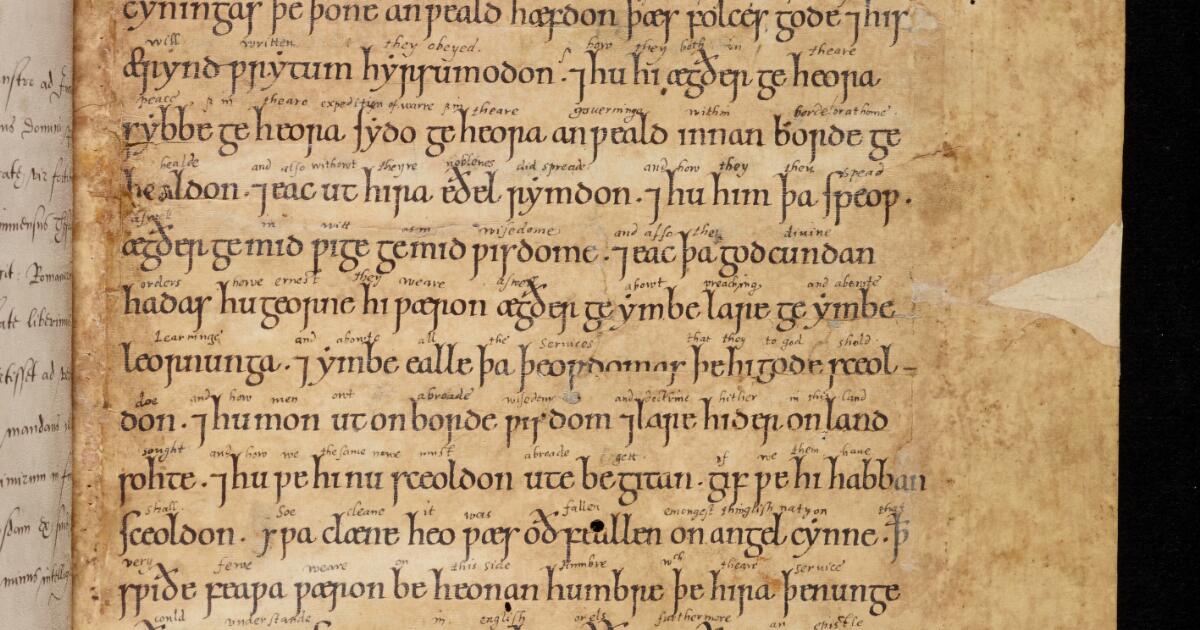 cyningas þe þone anƿeald hæfdon þæs folces gode ⁊ his
will written they obeyed. how they both in theare
ærynd ƿrytum hyrsumodon . ⁊ hu hi ægðer ge heora
peace in theare expedition of warre in theare governinge within
sybbe ge heora sydo ge heora anƿeald innan borde ge
healde and also without theyre noblenes did spreade and how they then spead
healdon . ⁊ eac ut hira eðel rymdon . ⁊ hu him þa speoƿ .
aswel in witt as in wisedome and also the divine
ægðer ge mid ƿige ge mid ƿisdome . ⁊ eac þa godcundan
orders howe ernest they weare aswell abowt preaching and abowte
hadas hu georne hi ƿæron ægðer ge ymbe lare ge ymbe
Learninge and abowte all the Services that they to god shold
leornunga . ⁊ ymbe ealle þa þeoƿdomas þe hi gode sceol-
doe and how men owt abroade wisedom and doctrine hither in this land
don . ⁊ hu mon ut on borde ƿisdom ⁊ lare hider on land
sought and how we the same nowe must abreade gett if we them have
sohte . ⁊ hu ƿe hi nu sceoldon ute begitan . gif ƿe hi habban
shall Soe cleane it was fallen emongest
sceoldon . sƿa clæne heo ƿæs oðfeallen on angel cynne . þ
very fewe weare on this side Humbre wch theare service
sƿiðe feaƿa ƿæron be heonan humbre þe hira þenunge
could understande in english or els furthermore an epistle